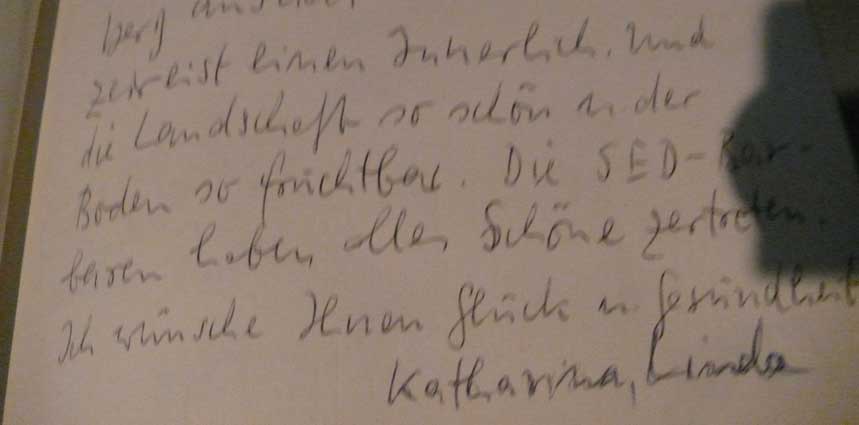 berg
zerreist einen Innerlich. Und
die Landschaft so schön u der
Boden so fruchtbar. Die SED-Bar-
baren haben alles Schöne zertreten.
Ich wünsche Ihnen Glück u Gesundheit
Katharina, Linda